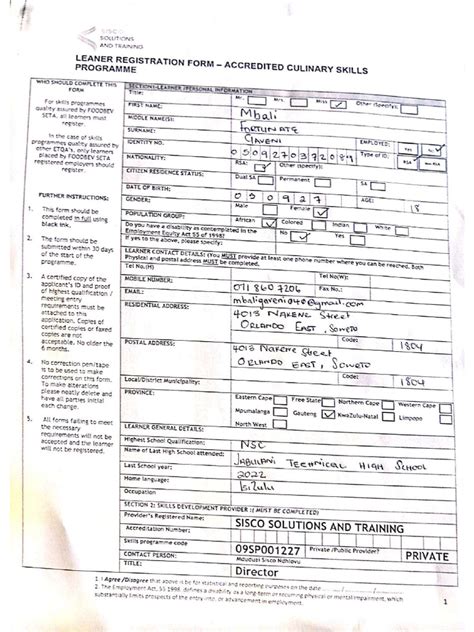 SISCO
SOLUTIONS
AND TRAINING
LEANER REGISTRATION FORM – ACCREDITED CULINARY SKILLS
PROGRAMME
WHO SHOULD COMPLETE THIS FORM
For skills programmes quality assured by FOODBEV SETA, all learners must register.
In the case of skills programmes quality assured by other ETQA's, only learners placed by FOODBEV SETA registered employers should register.
FURTHER INSTRUCTIONS:
1. This form should be completed in full using black ink.
2. The form should be submitted within 30 days of the start of the programme.
3. A certified copy of the applicant's ID and proof of highest qualification / meeting entry requirements must be attached to this application. Copies of certified copies or faxed copies are not acceptable. No older the 6 months.
4. No correction pen/tape is to be used to make corrections on this form. To make alterations please neatly delete and have all parties initial each change.
5. All forms failing to meet the necessary requirements will not be accepted and the learner will not be registered.
SECTION1:LEARNER /PERSONAL INFORMATION
Title: Mr. Mrs. Miss Other (specify):
FIRST NAME: Mbali
MIDDLE NAME(S): FORTUNATE
SURNAME:
IDENTITY NO. EMPLOYED: Yes No
NATIONALITY: RSA: Other (specify): Type of ID: RSA
CITIZEN RESIDENCE STATUS: Dual SA Permanent SA
DATE OF BIRTH: 050927 AGE: 18
GENDER: Male Female
POPULATION GROUP: African Colored Indian White
Do you have a disability as contemplated in the Employment Equity Act 55 of 1998? No Yes
If yes to the above, please specify:
LEARNER CONTACT DETAILS: (You MUST provide at least one phone number where you can be reached. Both Physical and postal address MUST be completed.
Tel No.(H) Tel No(W):
MOBILE NUMBER: 071 860 7206 Fax No:
EMAIL:
RESIDENTIAL ADDRESS: 4013 NAKENE Street
ORLANDO EAST, SOWETO
Code: 1804
POSTAL ADDRESS: 4013 NAKENE Street
ORLANDO EAST, SOWETO
Code: 1804
Local/District Municipality:
PROVINCE: Eastern Cape Free State Northern Cape Western Cape
Mpumalanga Gauteng KwaZulu-Natal Limpopo
North West
LEARNER GENERAL DETAILS:
Highest School Qualification: NSC
Name of Last High School attended: JABULANI TECHNICAL HIGH SCHOOL
Last School year: 2022
Home language: IsiZulu
Occupation
SECTION 2: SKILLS DEVELOPMENT PROVIDER :( MUST BE COMPLETED)
Provider's Registered Name: SISCO SOLUTIONS AND TRAINING
Accreditation Number:
Skills programme code 09SP001227 Private /Public Provider? PRIVATE
CONTACT PERSON: Mduduzi Sisco Ndhlovu
TITLE: Director
1. I Agree/Disagree that above is be for statistical and reporting purposes on the date
2. The Employment Act, 55 1998, defines a disability as a long-term or recurring physical or mental impairment, which substantially limits prospects of the entry into, or advancement in employment.
1